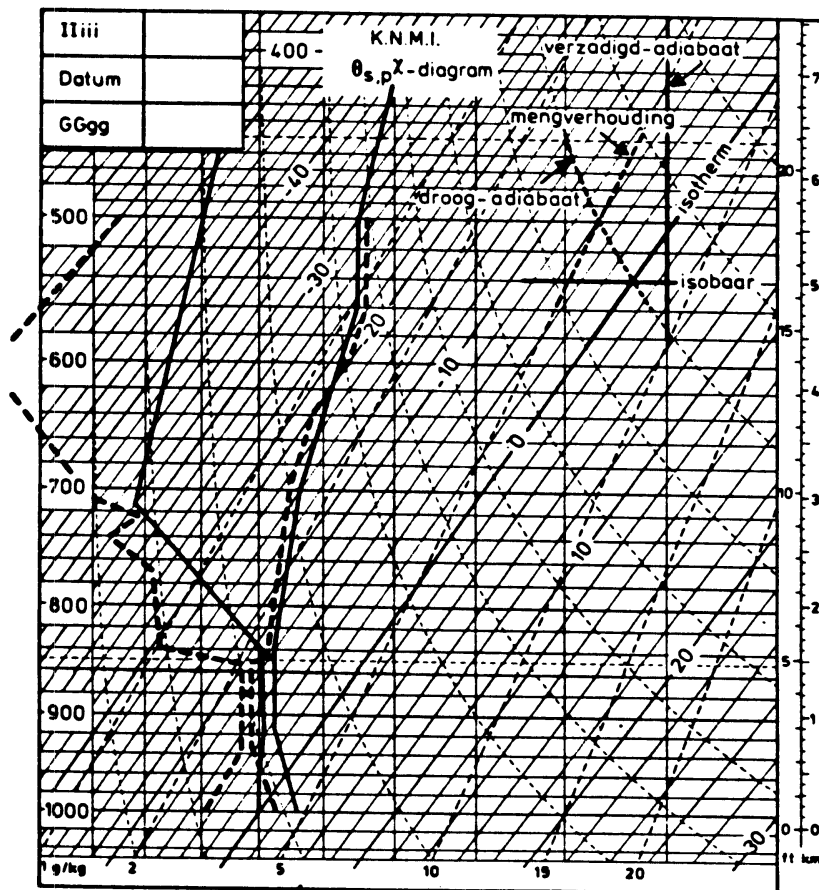 IIiii
Datum
GGgg
K.N.M.I.
θs,pχ-diagram
verzadigd-adiabaat
mengverhouding
droog-adiabaat
isotherm
isobaar
400
500
600
700
800
900
1000
-40
-30
-20
-10
0
10
20
30
1 g/kg 2 5 10 15 20
20
15
10
5
0
7
6
5
4
3
2
1
0
ft km